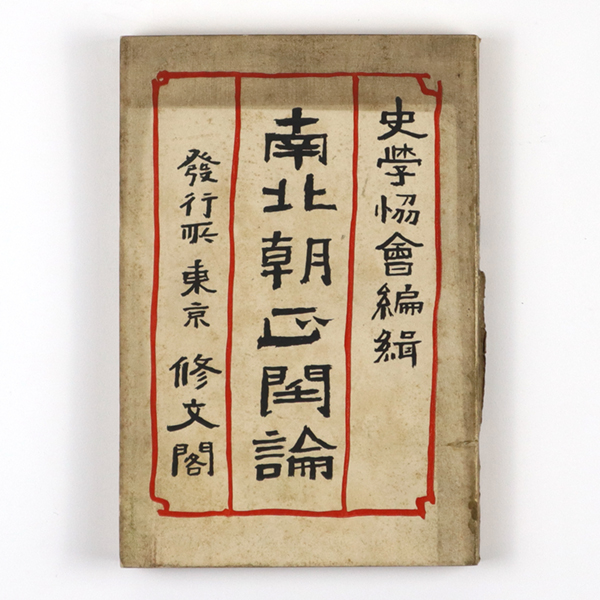 史学恊會編緝
南北朝正閏論
發行所東京修文閣